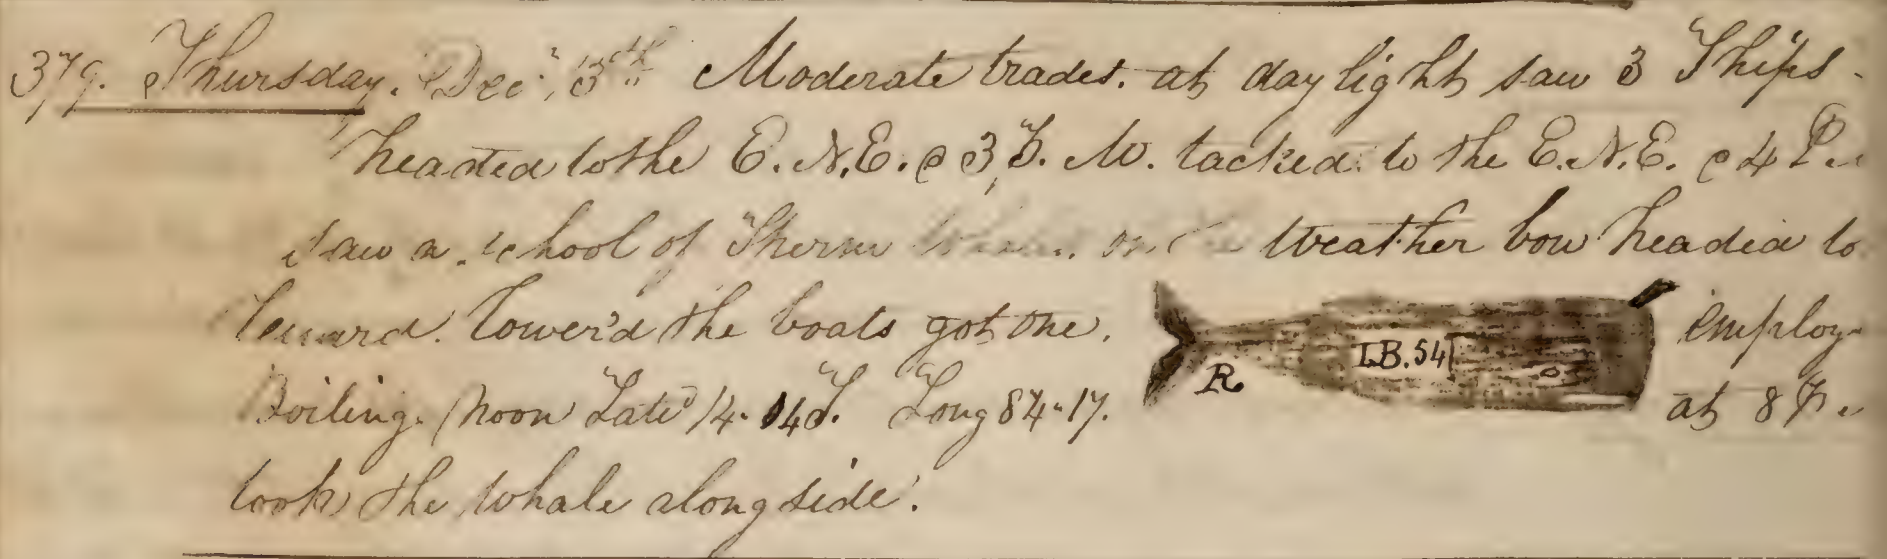 379. Thursday. Dec, 3th Moderate trades. at daylight saw 3 Ships
headed to the E.N.E. @ 3 P. M. tacked to the E.N.E. @ 4 P.
saw a school of Sperm Whales on the Weather bow headed to
leward. lower'd the boats got one. employ
L.B. 54
R
Boiling. Noon Latd 14.04 S. Long 84.17. at 8 P.
took the whale alongside.